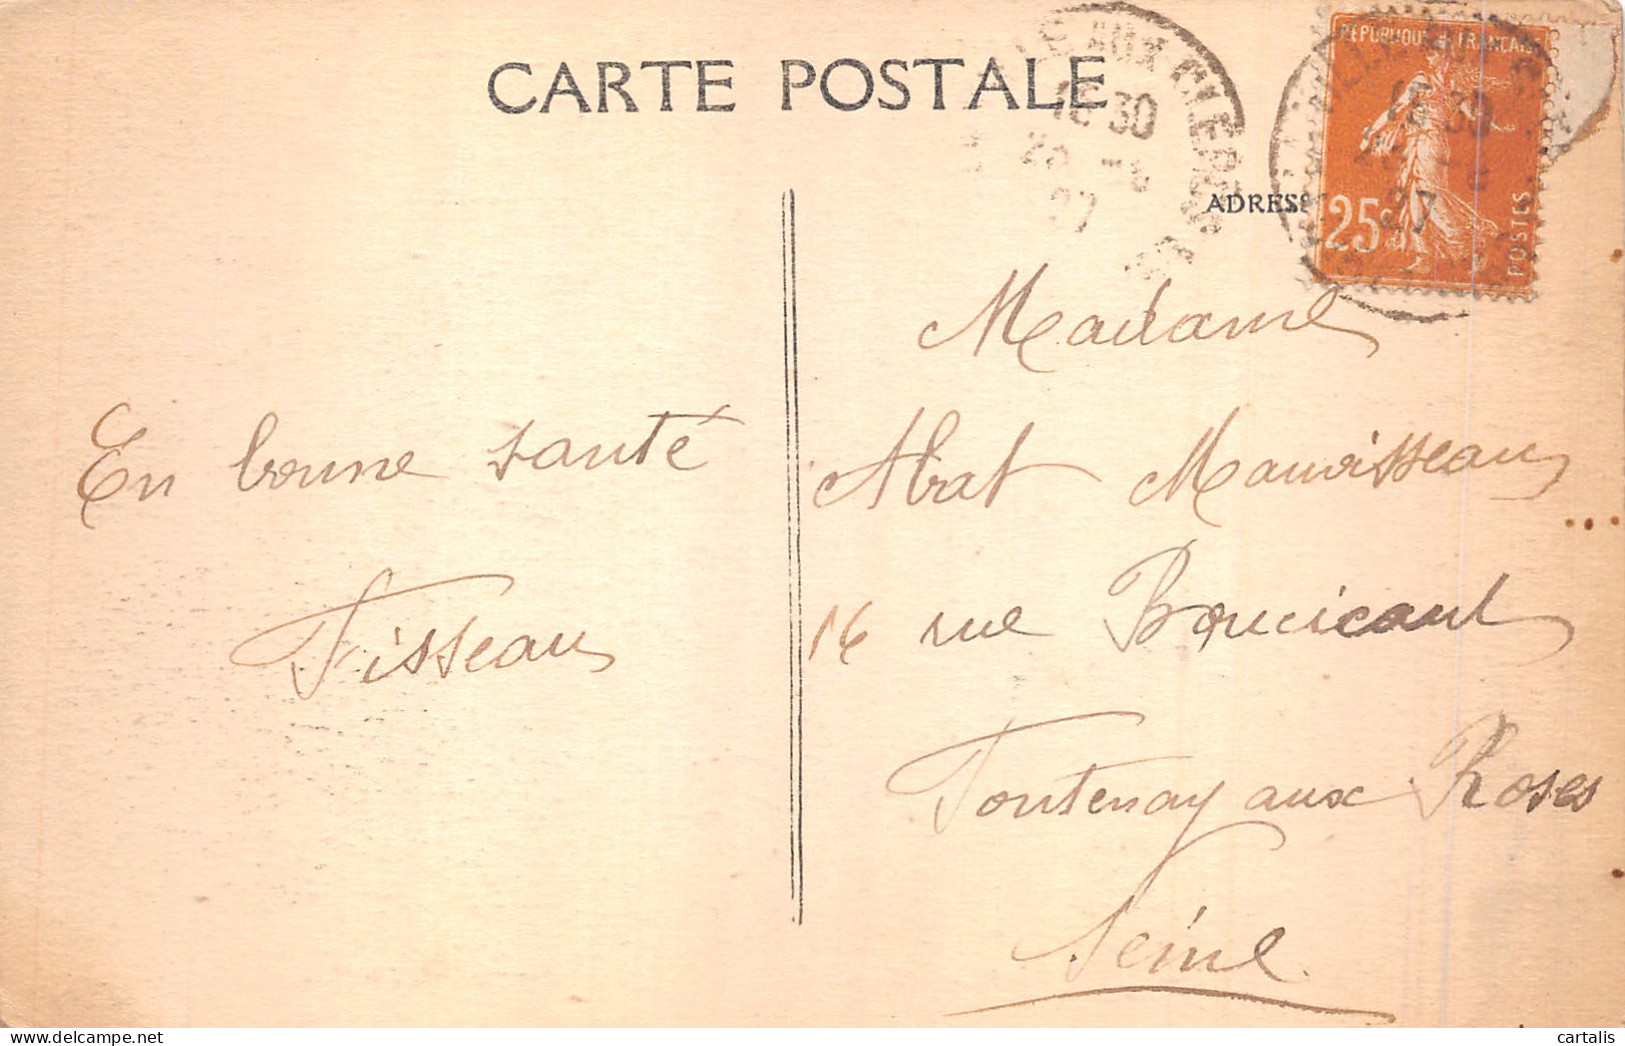 CARTE POSTALE
AUX CLERCS
16 30
27
REPUBLIQUE FRANÇAISE
25
POSTES
ADRESSE
En bonne santé
Tisseau
Madame
Abat Mauvisseau
16 rue Boucicaut
Fontenay aux Roses
Seine
cartalis